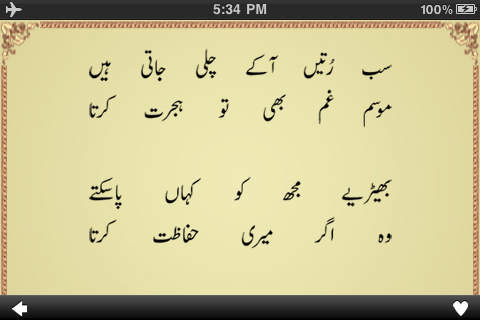 5:34 PM 100%
سب رُتیں آ کے چلی جاتی ہیں
موسم غم بھی تو ہجرت کرتا
بھیڑیے مجھ کو کہاں پا سکتے
وہ اگر میری حفاظت کرتا